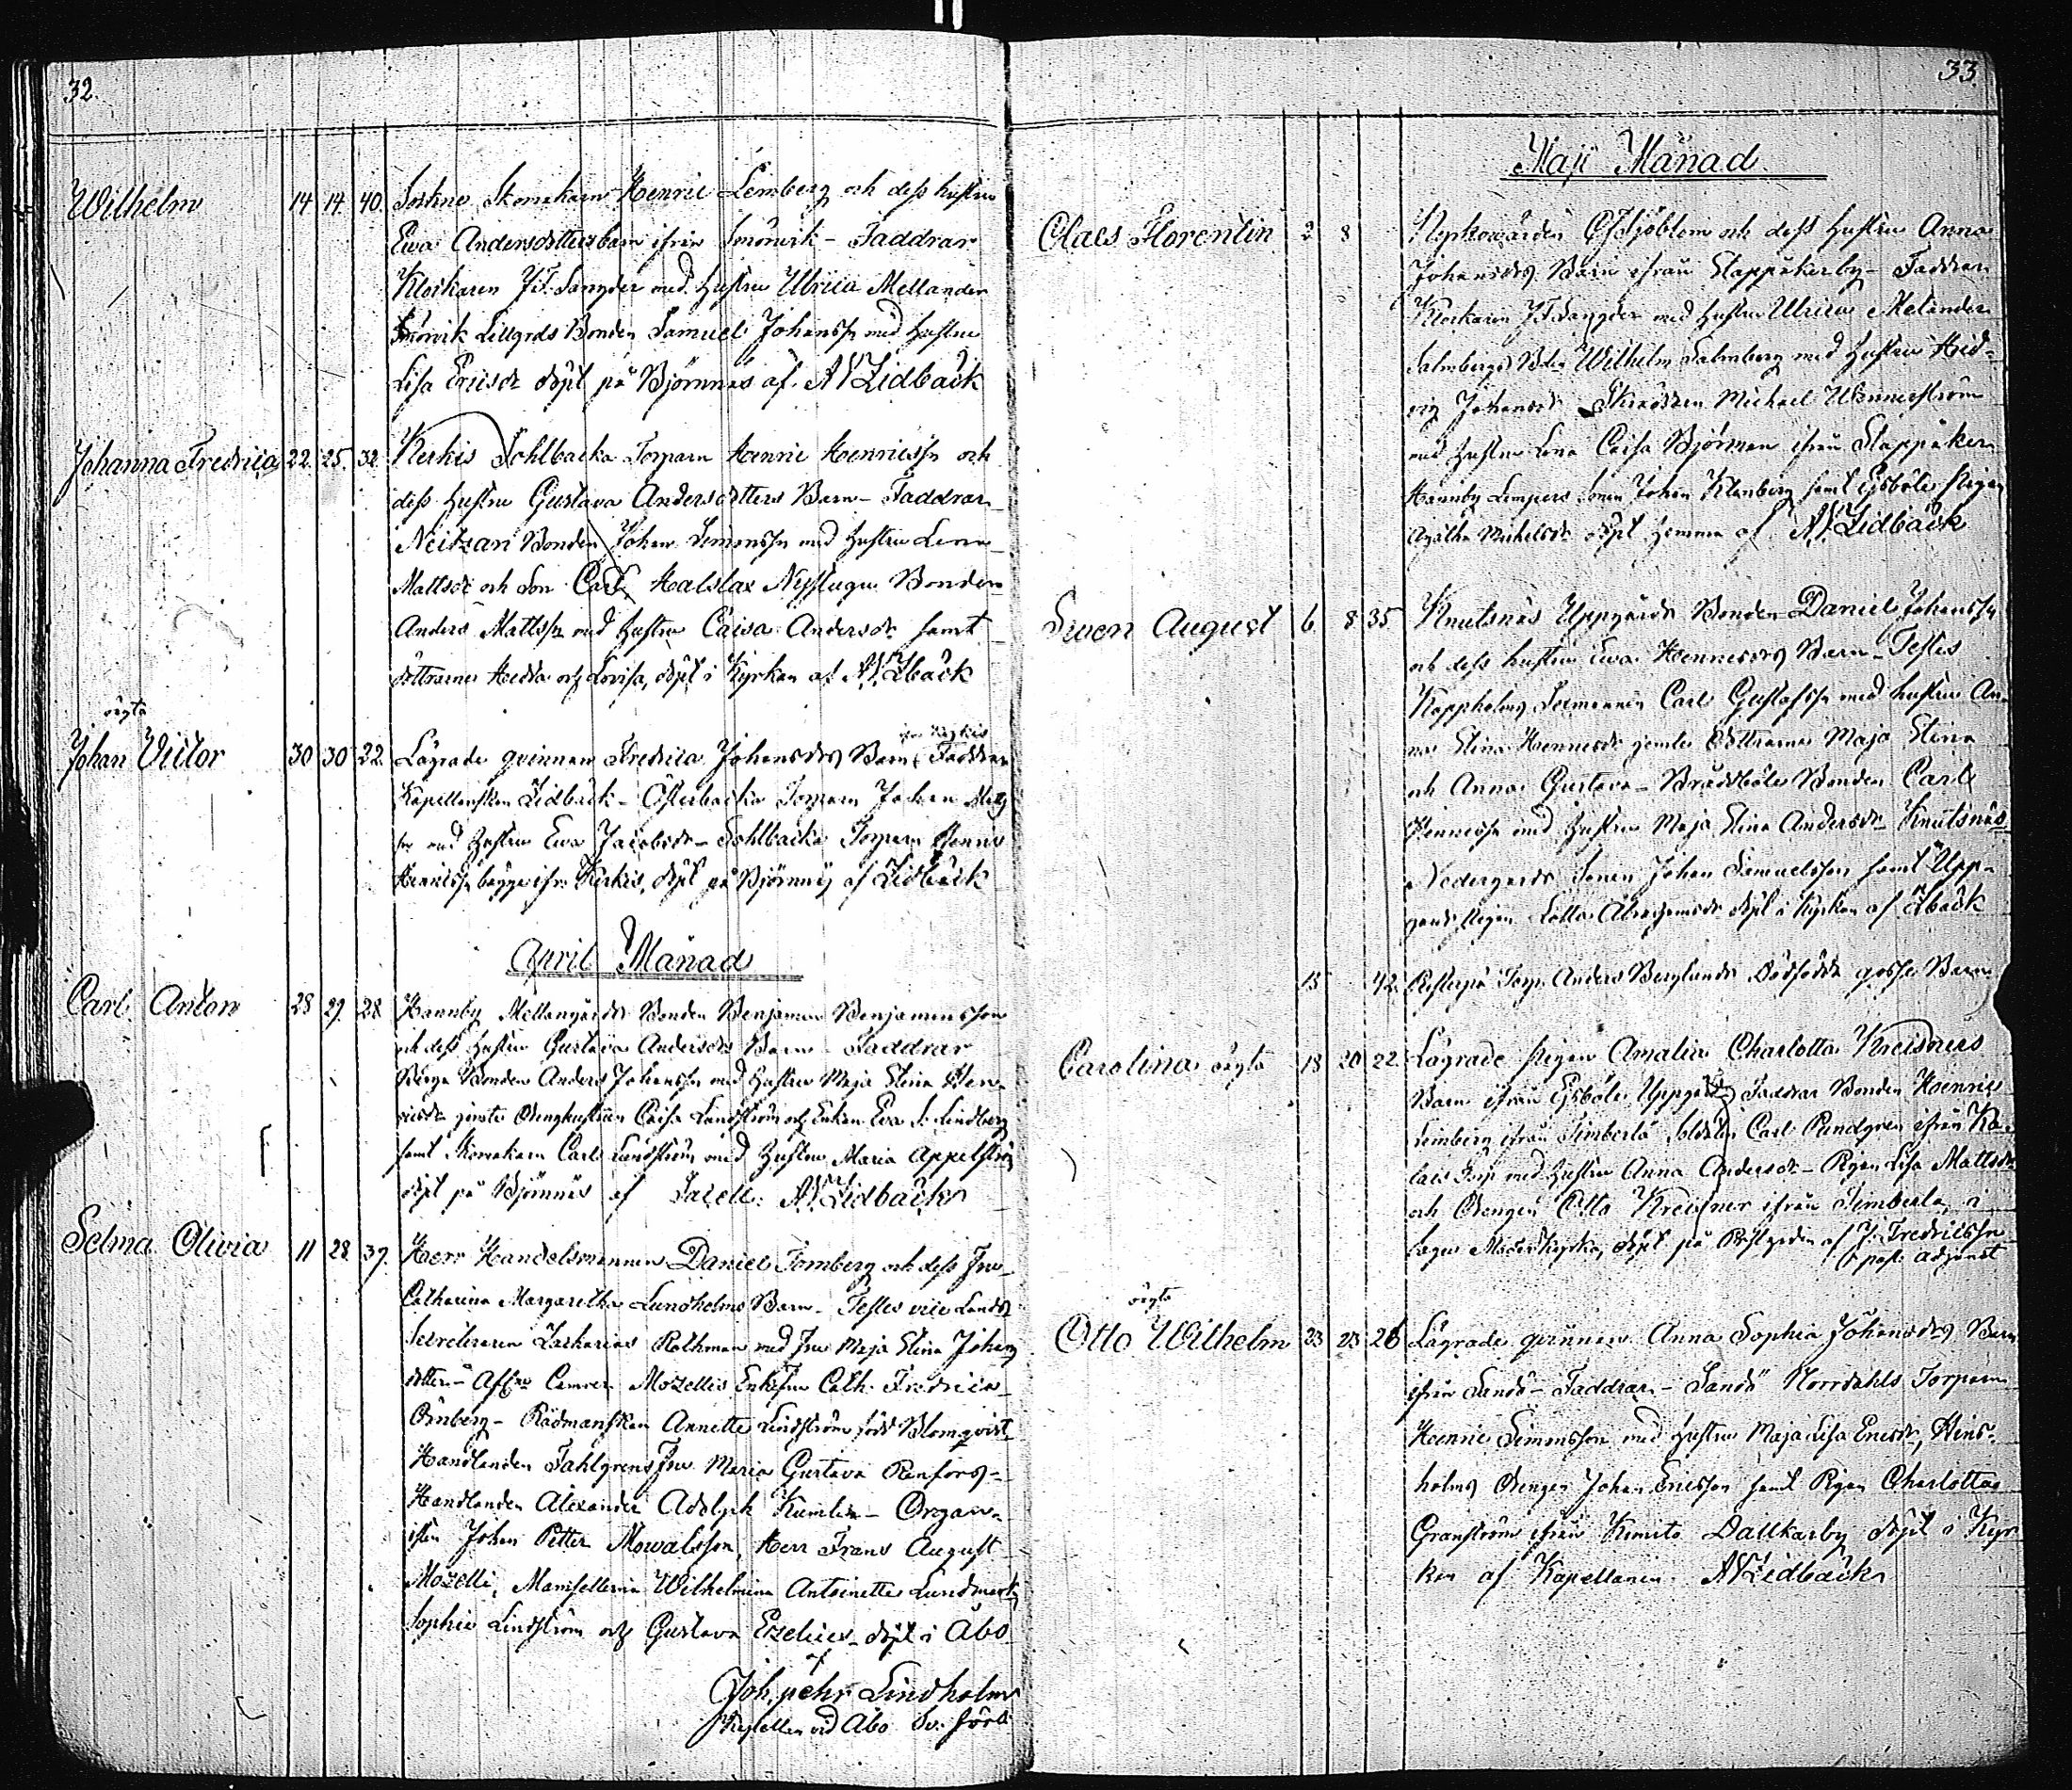 32.
Wilhelm 14 14. 40. Skomakaren Henric Lemberg och dess hustru
Ewa Andersdotters barn ifrån Smörvik - Faddrar
Klockaren J F. Sanyder med hustru Ulrica Mellander
Smörvik Lillgrds Bonden Samuel Johanss: med hustru
Lisa Ericsdr döpt på Björnnäs af A V Lidbäck
Johanna Fredrica 22. 25. 32. Kerkis Sohlbacka Torparn Henric Henricss: och
dess hustru Gustava Andersdotters Barn - Faddrar
Bonden Johan Simonss: med hustru Lena
Mattsdr och Son Carl, Halslax Nystugu Bonden
Anders Mattss: med hustru Caisa Andersdr samt
döttrarne Hedda och Lovisa, döpt i Kyrkan af A V. Lbäck
oägta
Johan Victor 30 30 22. Lägrade qvinnan Fredrica Johansdrs Barn Faddrar
Kapellanskan Lidbäck - Österbacka Torparn Johan
med hustru Ewa Jacobsdr - Sohlbacka Torparn Henric
Henricss: bägge ifrn Kerkis, döpt på Björnnäs af Lidbäck
April Månad
Carl Anton 28 29. 28 Hannby Mellangårds Bonden Benjamin Benjaminsson
och dess hustru Gustava Andersdrs Barn - Faddrar
Bonden Anders Johanss: med hustru Maja Stina Hen-
ricsdr jemte Drenghustrun Caisa Lundström och Enkan Eva S. Lindberg
samt Skomakarn Carl Lundström med hustru Maria Appelström
döpt på Björnnäs af Sacell: A V Lidbäck
Selma Olivia 11 28. 37. Herr Handelsmannen Daniel Tomberg och dess Fru
Catharina Margaretha Lundholms Barn - Testes vice Lands
Secreteraren Zacharias Rothman med Fru Maja Stina Johans
dotter - Camrer Mozellis Enkefru Cath: Fredrica
Örnberg - Rådmanskan Annette Lindström född Blomqvist
Handlanden Fahlgrens Fru Maria Gustava Renfors -
Handlanden Alexander Adolph Kumlin - Organi-
sten Johan Petter Mowalsson, Herr Frans August
Mozelli, Mamsellerna Wilhelmina Antoinette Lundmark
Sophie Lindström och Gustava Ezelius - döpt i Åbo
af
Joh. pehr Lindholm
Kapellan vid Åbo Sv. förs:
33
Maji Månad
Claes Florentin 2 8 Kyrkovärden Sjöblom och dess hustru Anna
Johansdrs Barn ifrån Slappåkerby - Faddrar
Klockaren J F Sanyder med hustru Ulrica Melander
Salmbergs Wilhelm Salmberg med hustru Hed-
vig Johansdr Skräddarn Michael Wennerström
med hustru Lena Caisa Björman ifrån Slappåker
Hannby Lempers Sonen Johan Klenberg samt Gisböle Pigan
Agatha Michelsdr döpt hemma af A V. Lidbäck
Swen August 6. 8 35 Knutsnäs Uppgårds Bonden Daniel Johanss:
och dess hustru Ewa Henricsdrs Barn - Testes
Koppholms Carl Gustafss: med hustru An-
na Stina Henricsdr jemte döttrarna Maja Stina
och Anna Gustava - Brådsböle Bonden Carl
Henricss: med hustru Maja Stina Andersdr - Knutsnäs
Nedergårds Sonen Johan Samuelsson samt Upp-
gårds Pigan Lotta Abrahamsdr döpt i Kyrkan af Lbäck
15 42. Torp. Anders Berglunds Dödfödde gosse Barn
Carolina oägta 18 20 22. Lägrade Pigan Amalia Charlotta Kreidners
Barn ifrån Gisböle Uppgård, Faddrar Bonden Henric
Limberg ifrån Timberla Soldaten Carl Rundgren ifrån
med hustru Anna Andersdr - Pigan Lisa Mattsdr
och Drengen Otto Kreidner ifrån Timberla, i
Moderkyrka, döpt på Prästgården af J. Fredricsson
past: adjunct
oägta
Otto Wilhelm 23 23 26 Lägrade qvinnan Anna Sophia Johansdrs Barn
ifrån Sandö - Faddrar - Sandö Norrdahls Torparn
Henric Simonsson med hustru Maja Lisa Ericsdr, Hins-
holms Drengen Johan Ericsson samt Pigan Charlotta
Granström ifrån Kimito Dallkarby döpt i Kyr
kan af Kapellanen A V Lidbäck